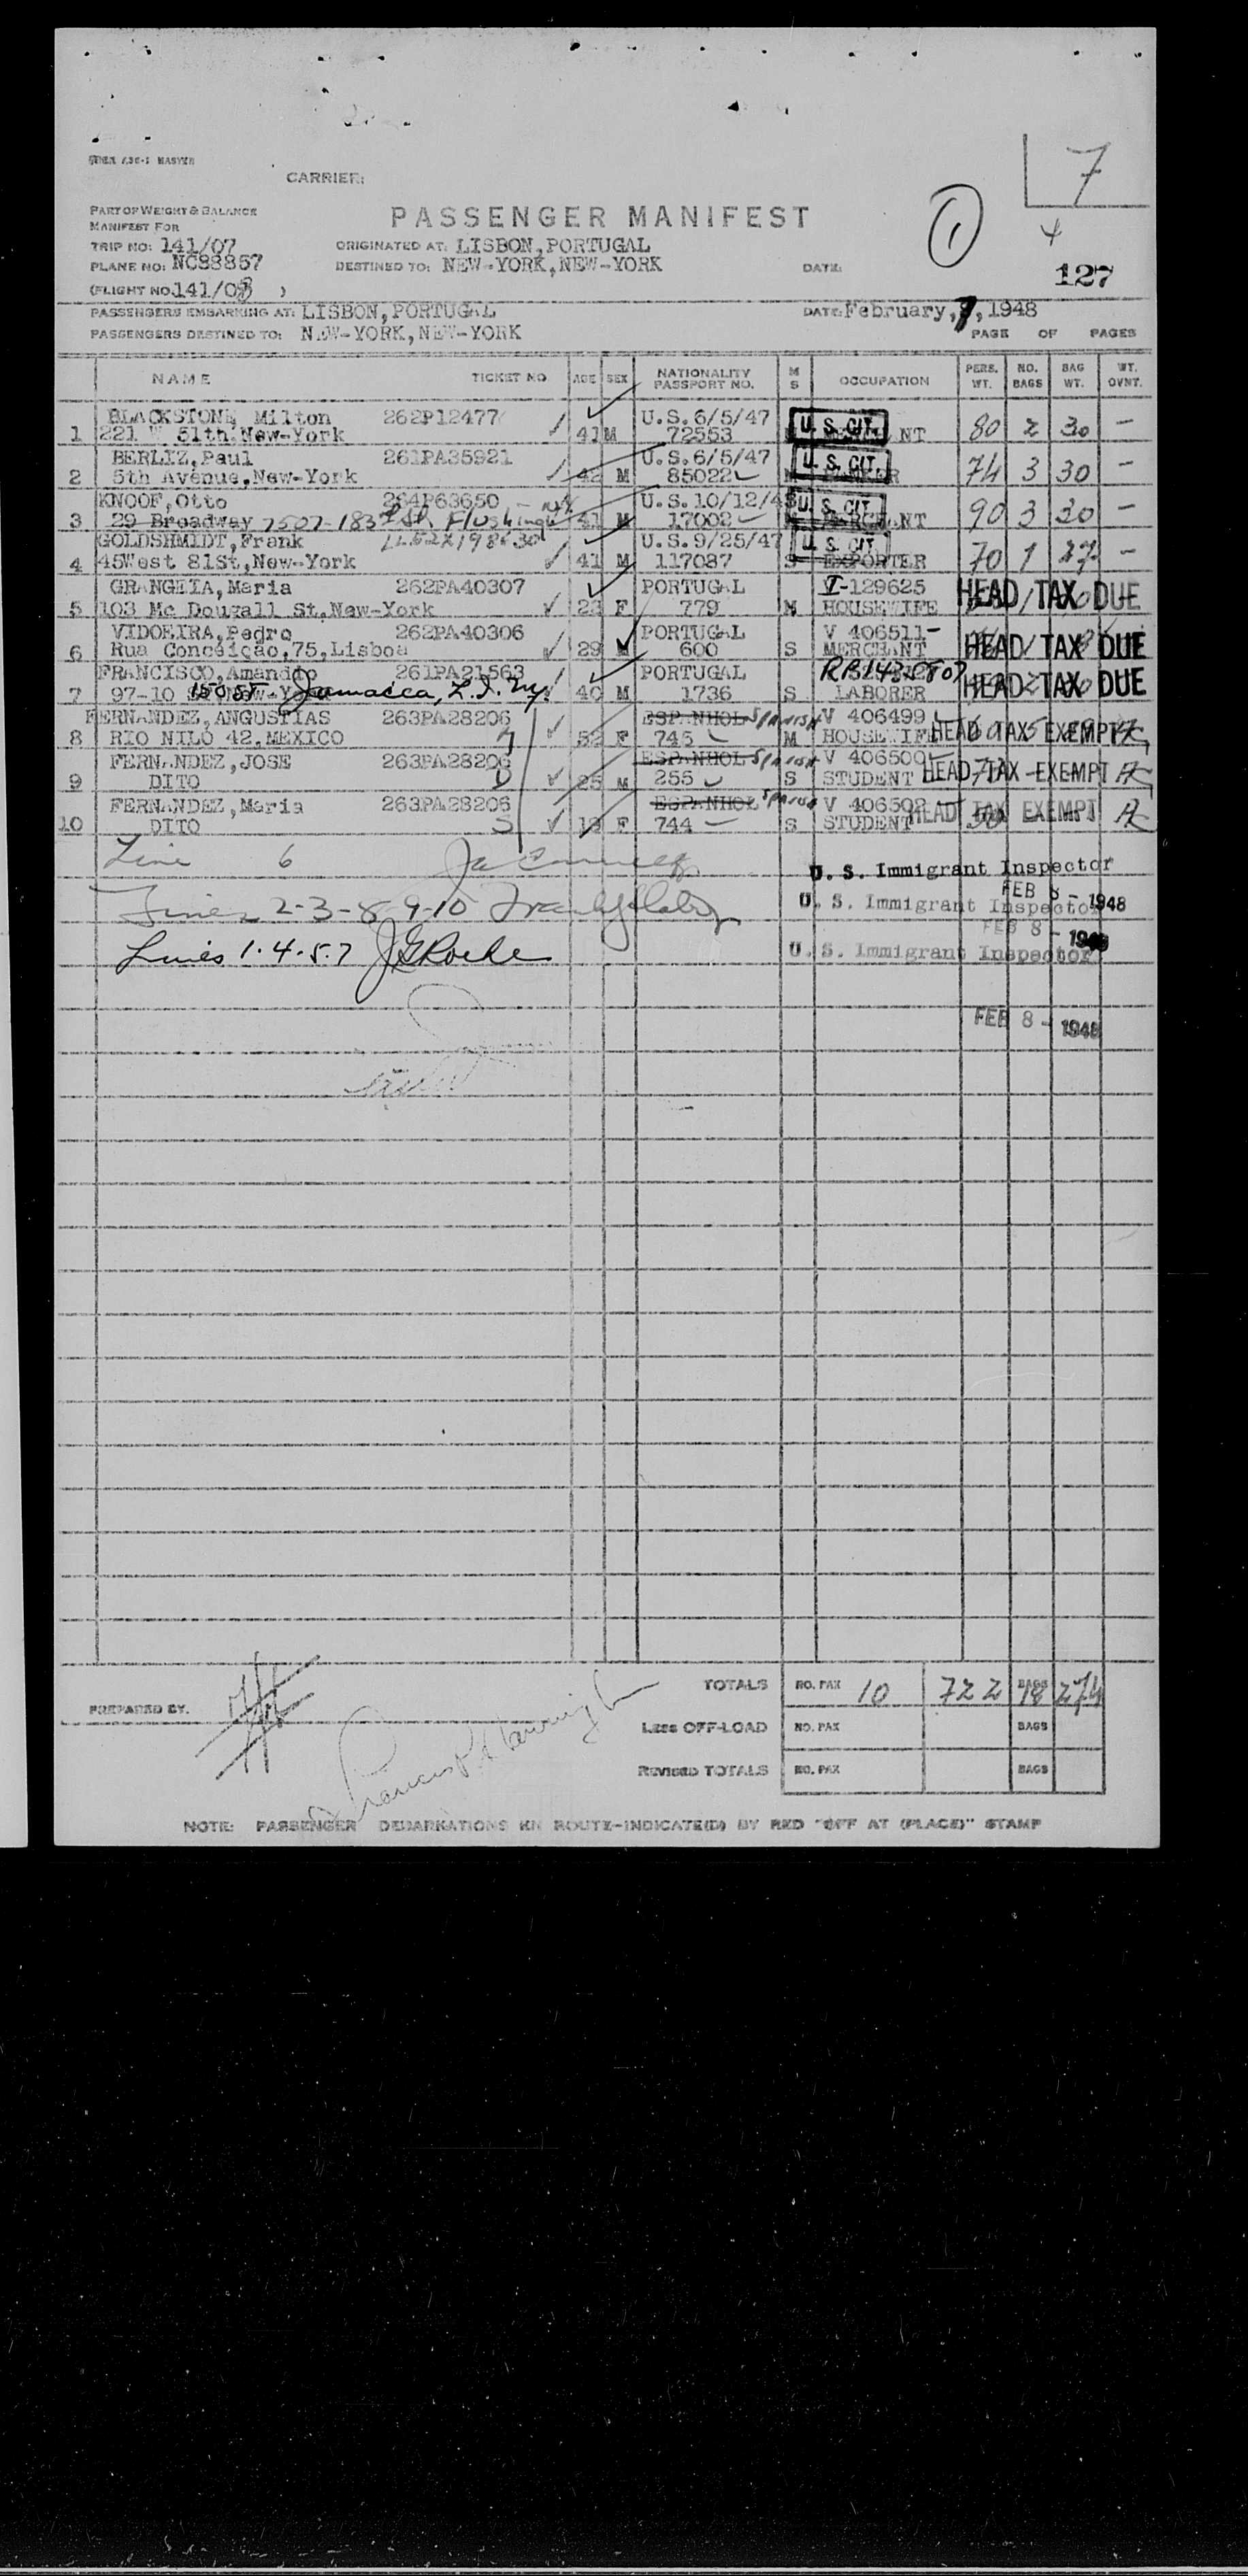 7
1
CARRIER:
PART OF WEIGHT & BALANCE
PASSENGER MANIFEST
MANIFEST FOR
TRIP NO: 141/07 ORIGINATED AT: LISBON,PORTUGAL
PLANE NO: NC88857 DESTINED TO: NEW-YORK,NEW-YORK DATE: 127
(FLIGHT NO.141/08 )
PASSENGERS EMBARKING AT: LISBON,PORTUGAL DATE: February,7,1948
PASSENGERS DESTINED TO: NEW-YORK,NEW-YORK PAGE OF PAGES
NAME TICKET NO AGE SEX NATIONALITY PASSPORT NO. M S OCCUPATION PERS. WT. NO. BAGS BAG WT. WT. OVNT.
BLACKSTONE, Milton 262P12477 U.S.6/5/47 U. S. CIT. 80 2 30 -
1 221 W 51th.New-York 41 M 72553
BERLIZ,Paul 261PA35921 U.S.6/5/47 U. S. CIT. 74 3 30 -
2 5th Avenue,New-York 42 M 85022
KNOOF,Otto 264P63650 U.S.10/12/45 U. S. CIT. 90 3 30 -
3 29 Broadway 7507-183rd St. Flushing 41 M 17002
GOLDSHMIDT,Frank U.S.9/25/47 U. S. CIT. 70 1 27 -
4 45West 81St,New-York 41 M 117087 S EXPORTER
GRANGEIA,Maria 262PA40307 PORTUGAL I-129625 HEAD TAX DUE
5 103 Mc Dougall St.New-York 23 F 779 M HOUSEWIFE
VIDOEIRA,Pedro 262PA40306 PORTUGAL V 406511- HEAD TAX DUE
6 Rua Conceição,75,Lisboa 29 M 600 S MERCHANT
FRANCISCO,Amandio 261PA21563 PORTUGAL HEAD TAX DUE
7 97-10 150 St Jamaica, L.I. N.Y. 40 M 1736 S LABORER
FERNANDEZ,ANGUSTIAS 263PA28206 ESPANHOL SPANISH V 406499 HEAD TAX EXEMPT
8 RIO NILO 42,MEXICO 52 F 745 M HOUSEWIFE
FERNANDEZ,JOSE 263PA28206 ESPANHOL SPANISH V 406500 HEAD TAX EXEMPT
9 DITO 25 M 255 S STUDENT
FERNANDEZ,Maria 263PA28206 ESPANHOL SPANISH V 406502 HEAD TAX EXEMPT
10 DITO S 19 F 744 S STUDENT
Line 6 U. S. Immigrant Inspector
FEB 8 - 1948
Lines 2-3-8-9-10 U. S. Immigrant Inspector
FEB 8 - 1948
Lines 1.4.5.7 J G Roche U. S. Immigrant Inspector
FEB 8 - 1948
TOTALS NO. PAX 10 722 BAGS 18 274
PREPARED BY.
LESS OFF-LOAD NO. PAX BAGS
REVISED TOTALS NO. PAX BAGS
NOTE: PASSENGER DEBARKATIONS EN ROUTE-INDICATE(D) BY RED "OFF AT (PLACE)" STAMP